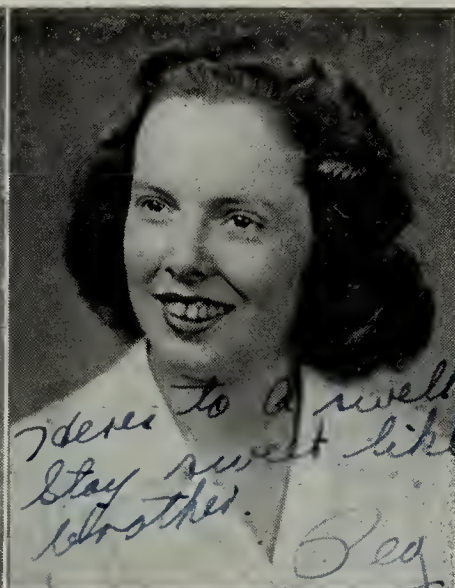 Heres to a swell
Stay sweet like
brother.
Peg